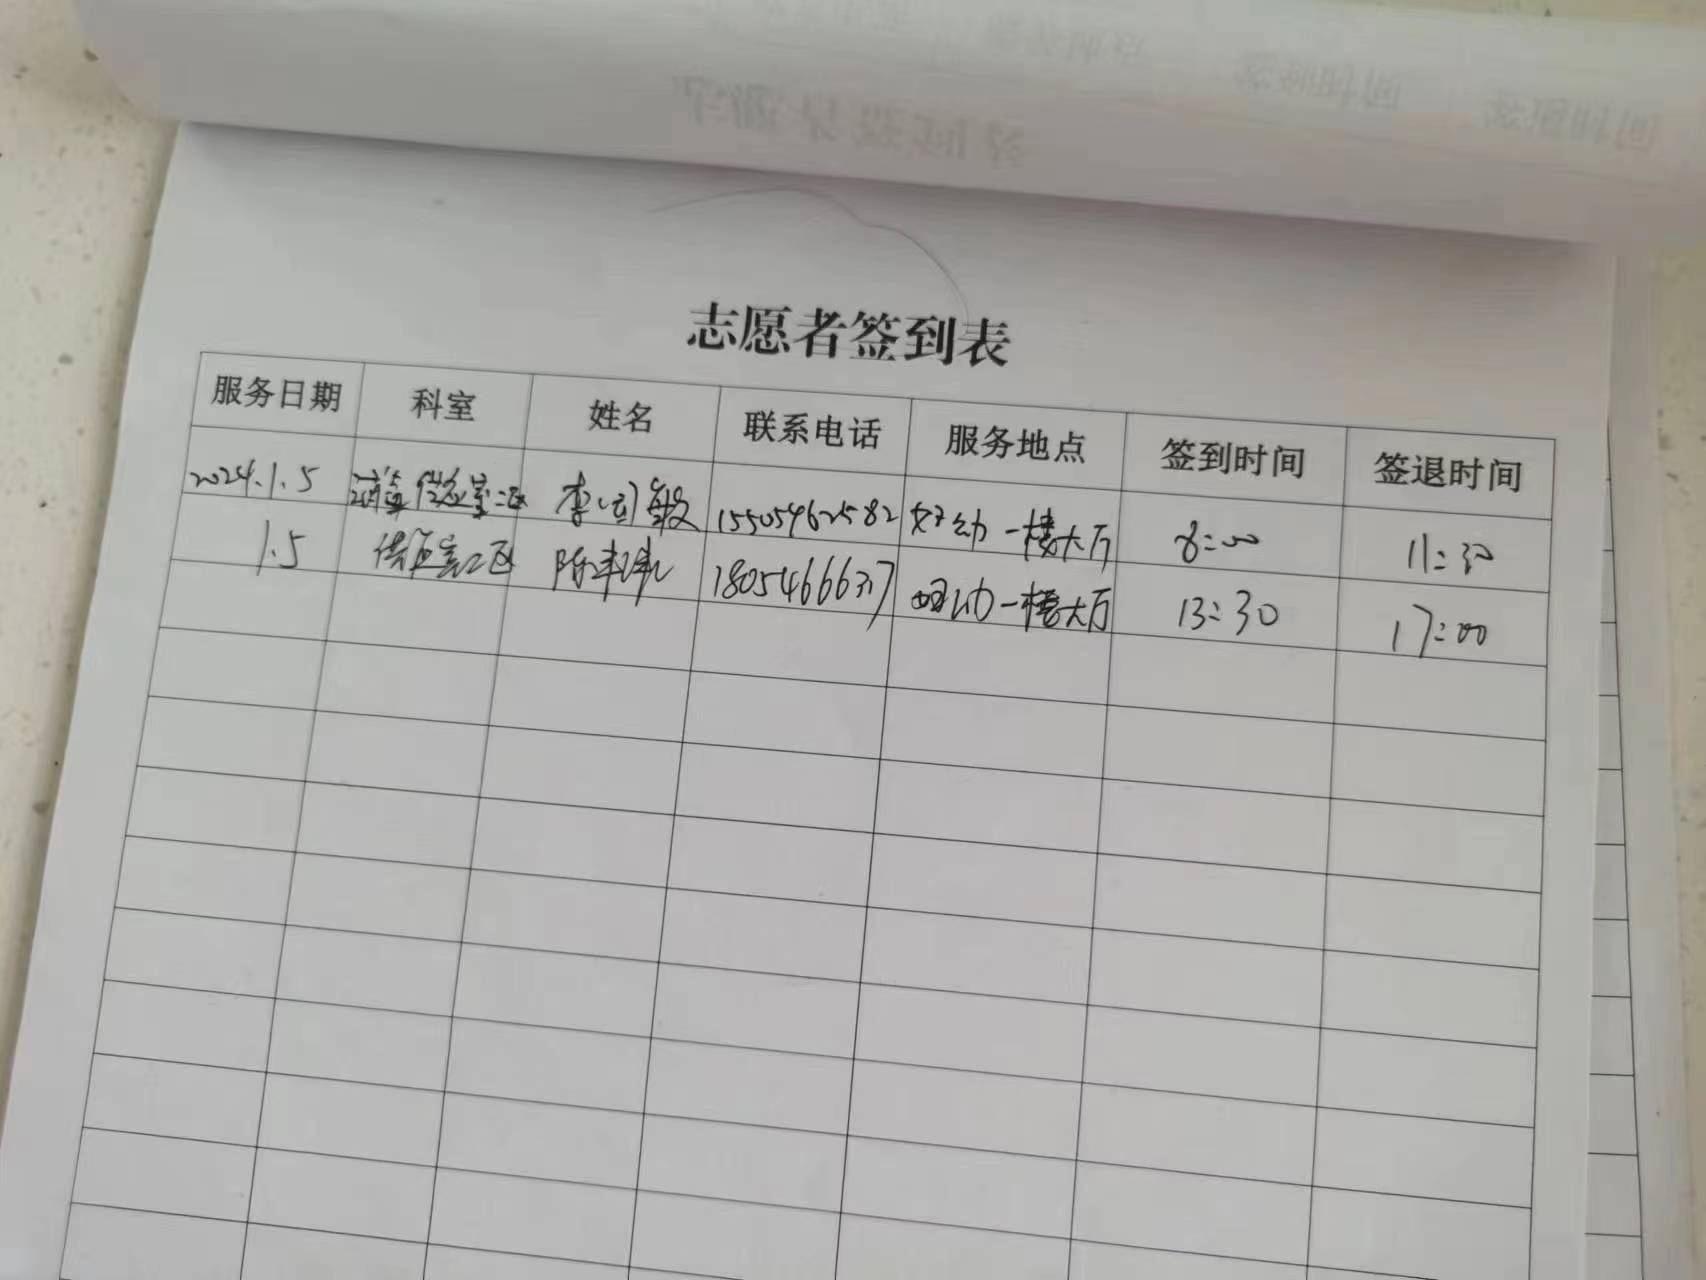 志愿者签到表
服务日期 科室 姓名 联系电话 服务地点 签到时间 签退时间
2024.1.5 消毒供应室二区 李 敏 15505462582 妇幼一楼大厅 8:00 11:30
1.5 供应室二区 陈 18054666317 妇幼一楼大厅 13:30 17:00